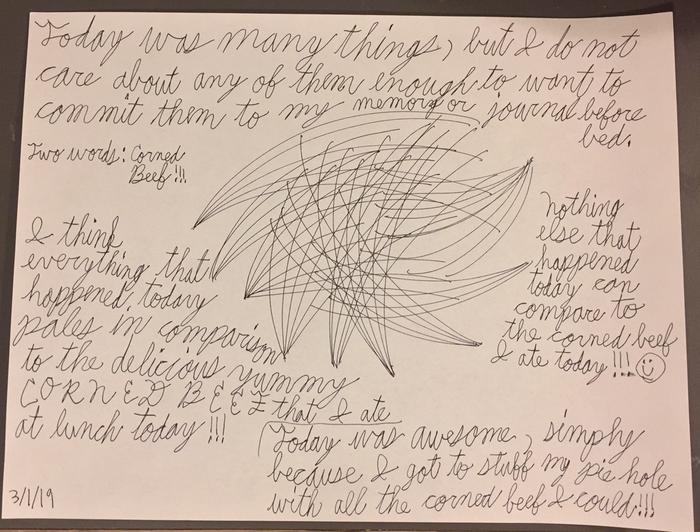 Today was many things, but I do not
care about any of them enough to want to
commit them to my memory or journal before
bed.
Two words: Corned
Beef!!!
I think
everything that
happened today
pales in comparison
to the delicious yummy
CORNED BEEF that I ate
at lunch today!!!
nothing
else that
happened
today can
compare to
the corned beef
I ate today!!!
Today was awesome, simply
because I got to stuff my pie hole
with all the corned beef I could!!!
3/1/19